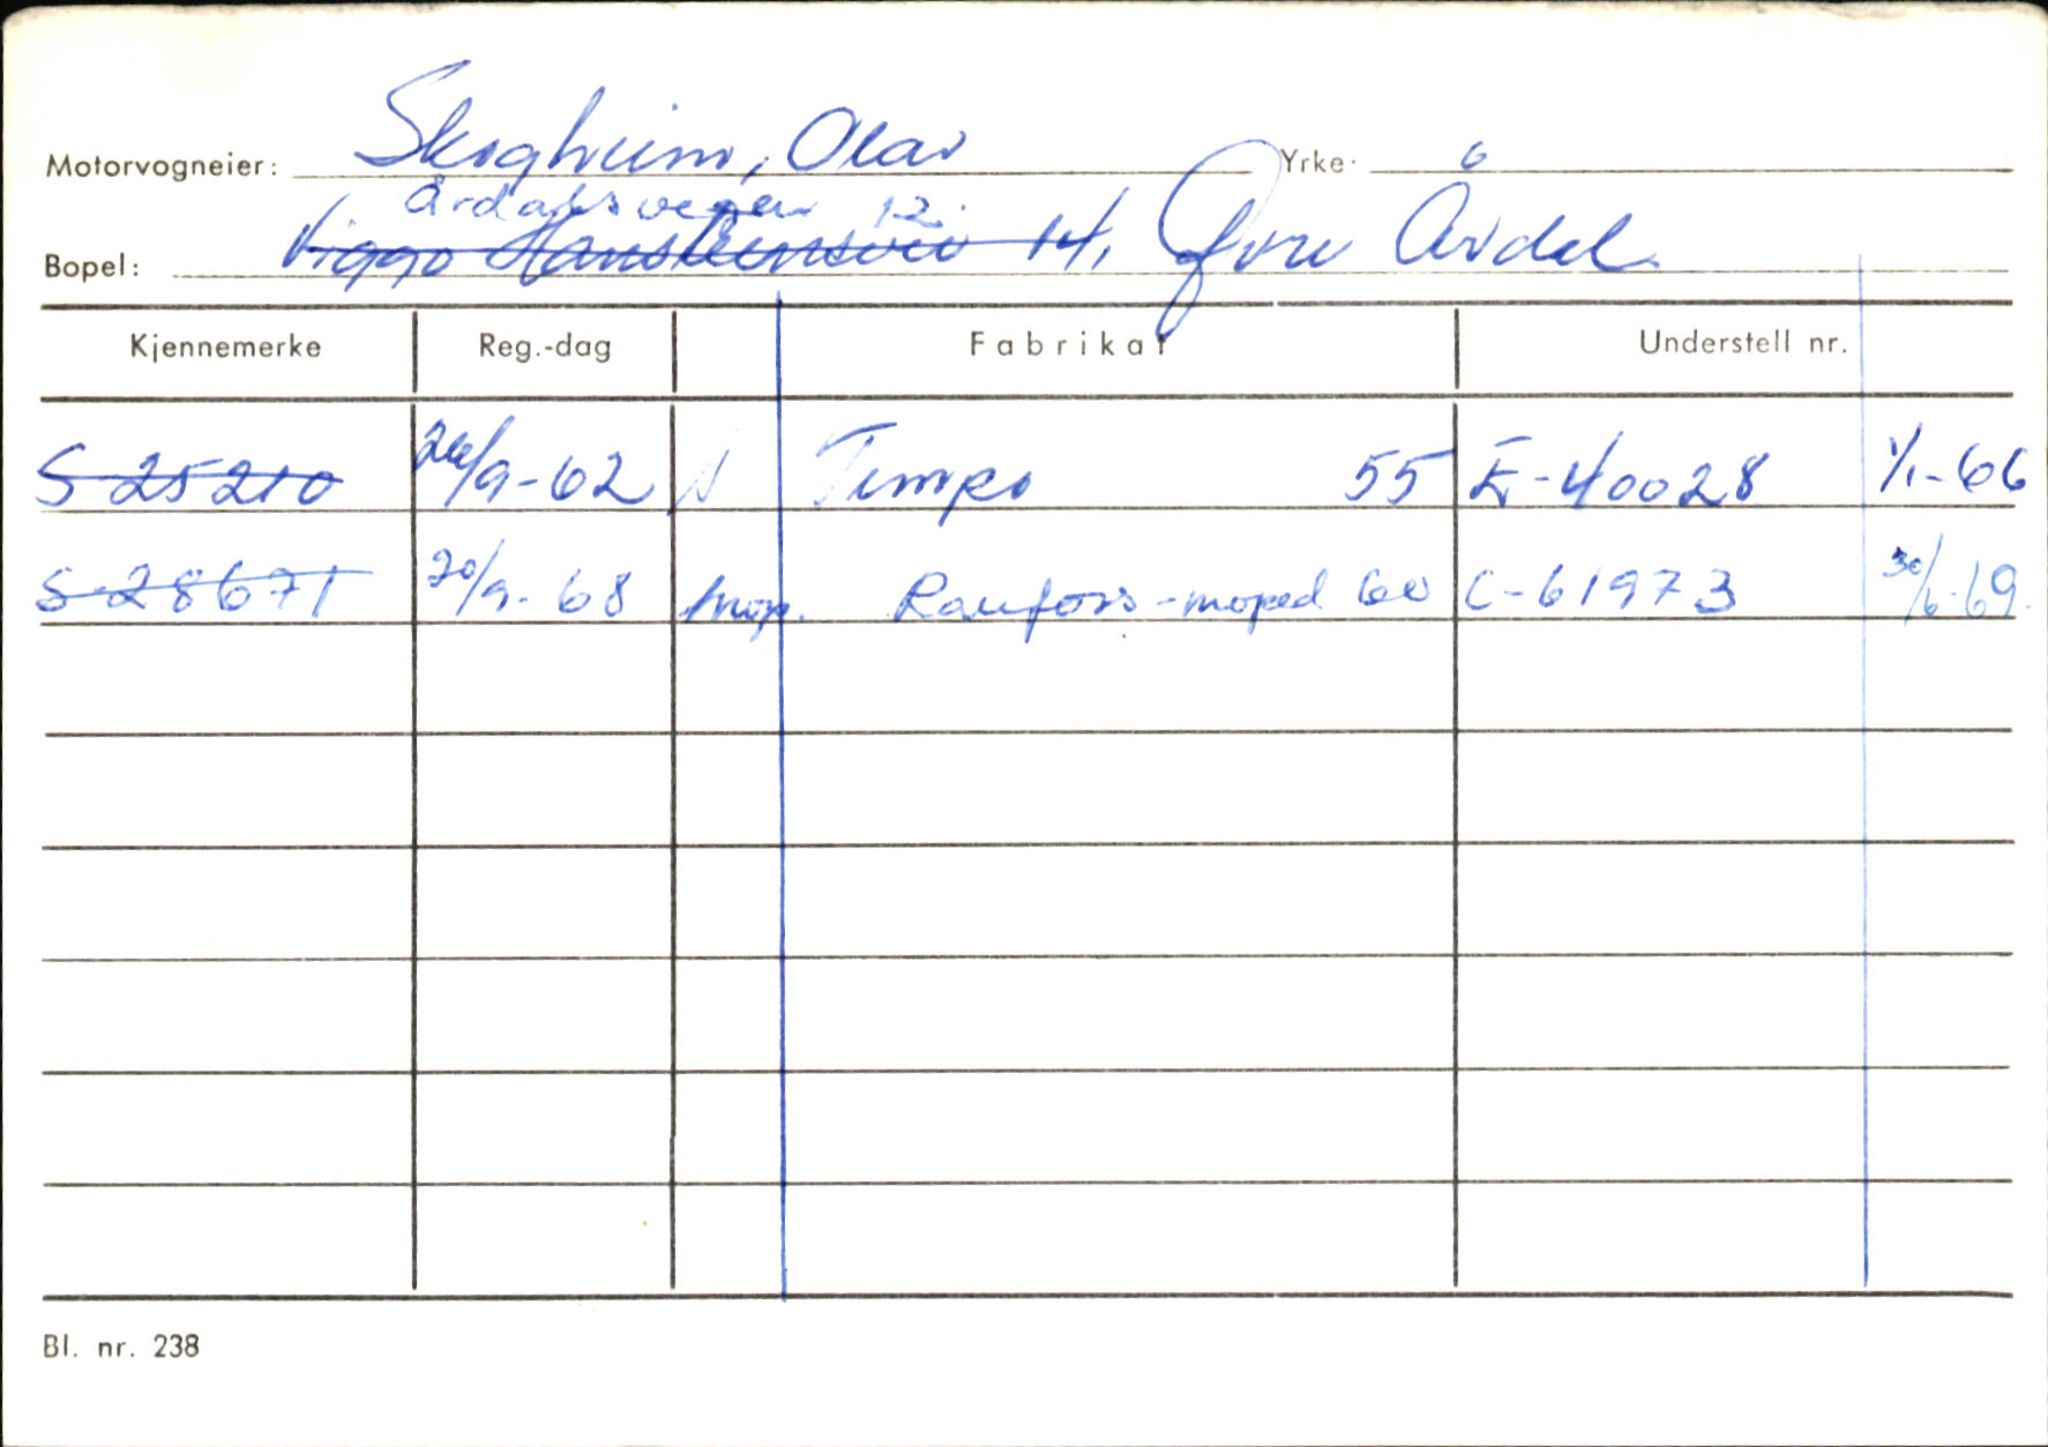 Motorvogneier: Skogheim, Olav Yrke. 6
Årdalsvegen 12.
Bopel: Viggo Hansteensvei 14, Øvre Årdal
Kjennemerke Reg.-dag Fabrikat Understell nr.
S 25210 26/9-62 N Tempo 55 E-40028 1/1-66
S-28671 20/9-68 Mop. Raufoss-moped 60 C-61973 30/6-69.
Bl. nr. 238